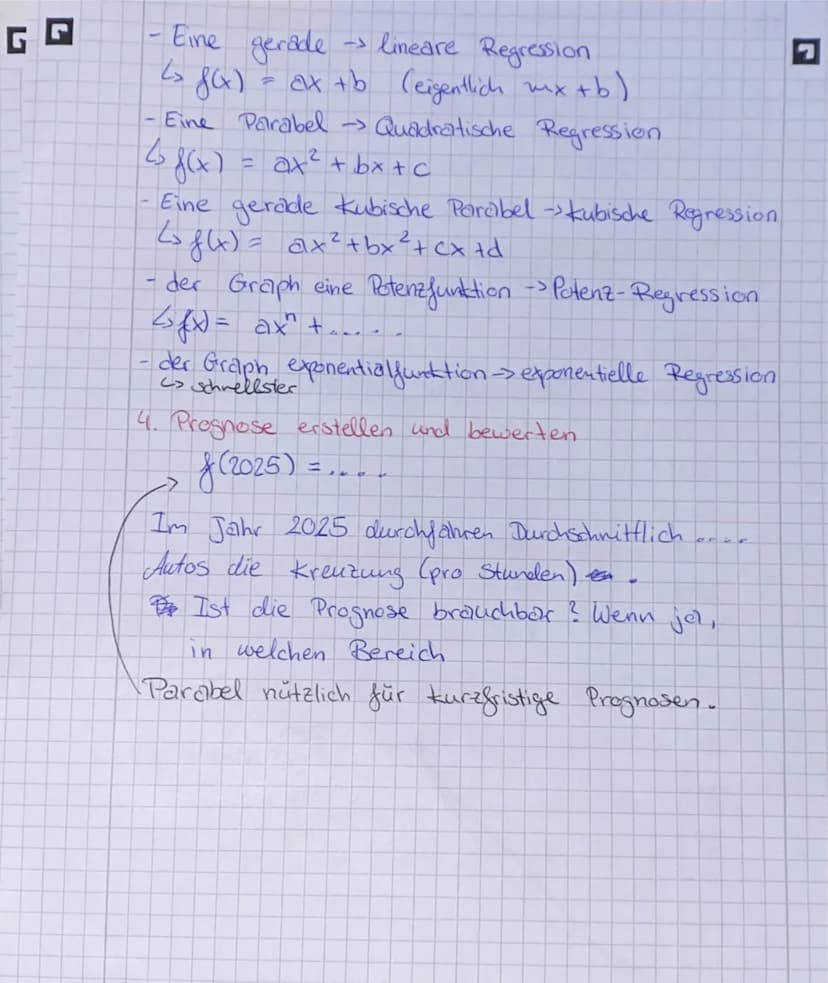 - Eine gerade -> lineare Regression
↳ f(x) = ax + b (eigentlich mx + b)
- Eine Parabel -> Quadratische Regression
↳ f(x) = ax² + bx + c
- Eine gerade kubische Parabel -> kubische Regression
↳ f(x) = ax² + bx² + cx + d
- der Graph eine Potenzfunktion -> Potenz-Regression
↳ f(x) = axⁿ + .....
- der Graph exponentialfunktion -> exponentielle Regression
↳ schnellster
4. Prognose erstellen und bewerten
f(2025) = .....
Im Jahr 2025 durchfahren Durchschnittlich ....
Autos die Kreuzung (pro Stunden) .
Ist die Prognose brauchbar? Wenn ja,
in welchen Bereich
Parabel nützlich für kurzfristige Prognosen.